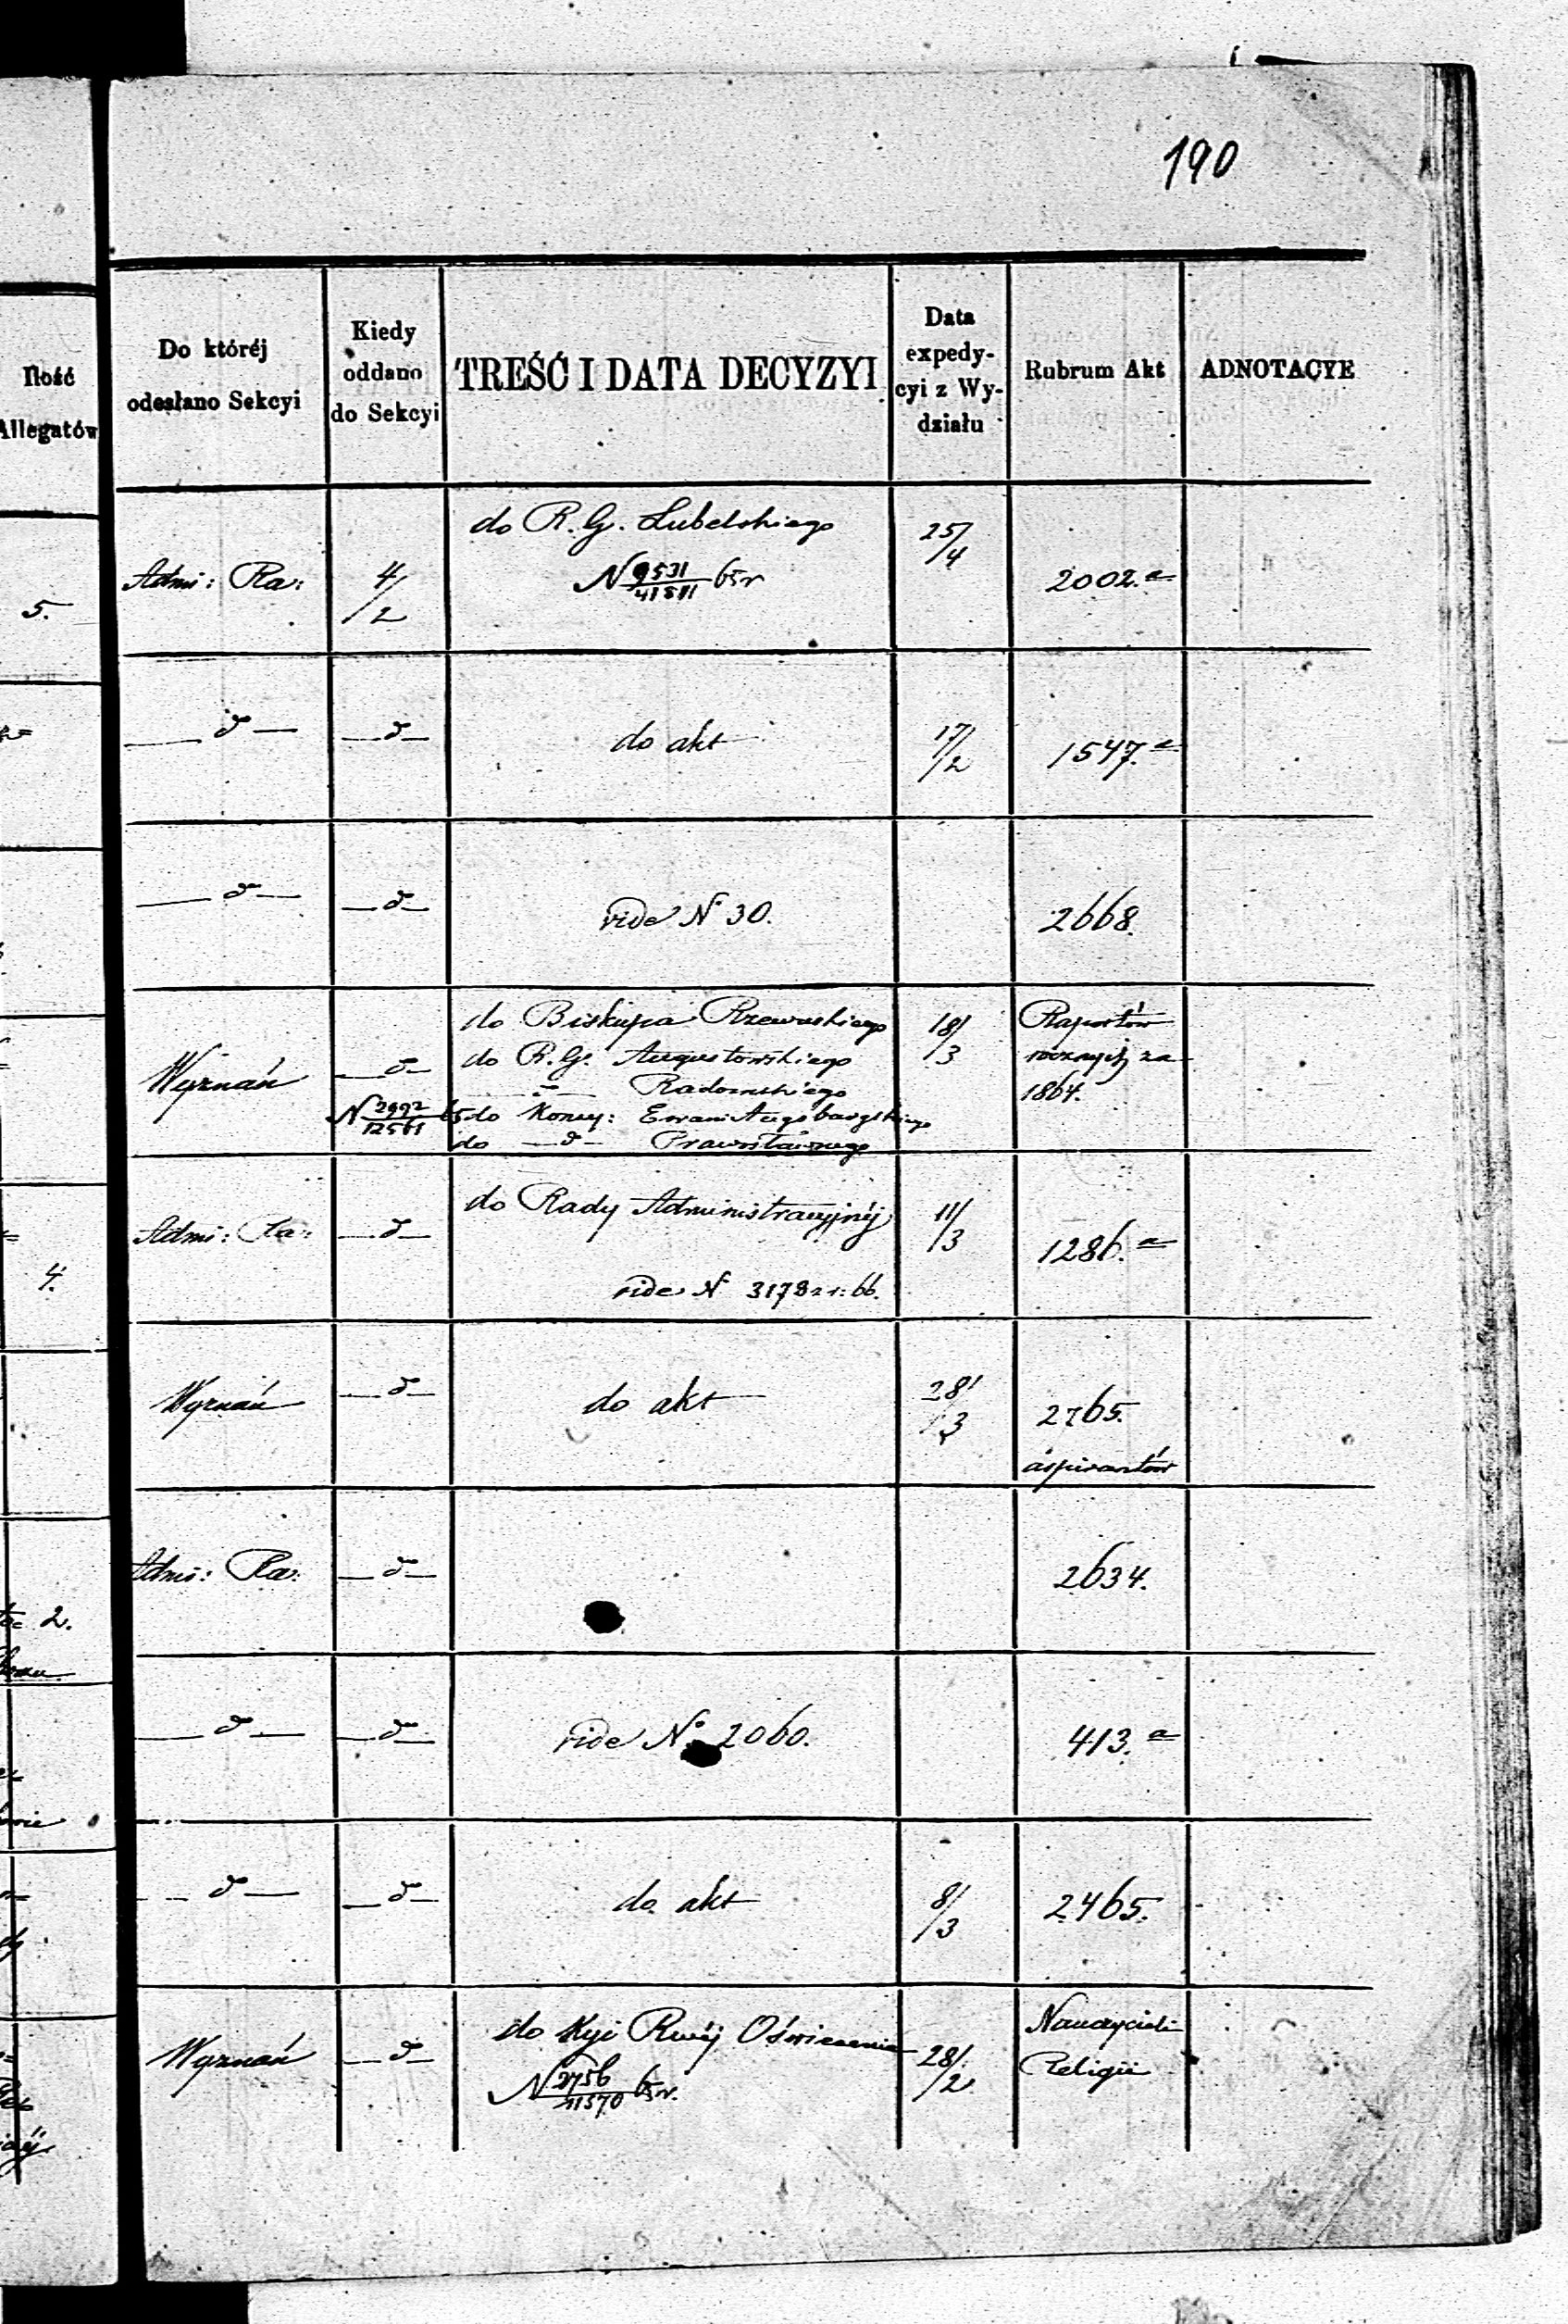 190
Ilość
Allegatów
Do któréj
odesłano Sekcyi
Kiedy
oddano
do Sekcyi
TREŚĆ I DATA DECYZYI
Data
expedy-
cyi z Wy-
działu
Rubrum Akt
ADNOTACYE
5.
Admi: Ra:
4/2
do R. G. Lubelskiego
N 9531/41511 65 r
25/4
2002.a
— d —
— d —
do akt
17/2
1547.a
— d —
— d —
vide N° 30.
2668.
Wyznań
— d —
N 2992/12561 65
do Biskupa Rzewuskiego
do R. G. Augustowskiego
— " — Radomskiego
do Konsy: Ewan: Augsburgskiego
do — d — Prawosławnego
18/3
Raportów
rocznych za
1864.
4.
Admi: Ra:
— d —
do Rady Administracyjnéj
vide N 3178 z r: 66.
11/3
1286.a
Wyznań
— d —
do akt
28/3
2765.
aspirantów
2.
Admi: Ra:
— d —
2634.
— d —
— d —
vide N° 2060.
413.a
— d —
— d —
do akt
8/3
2465.
Wyznań
— d —
do Kyi Rwéj Oświecenia
N 2756/11570 65 r.
28/2
Nauczycieli
Religii